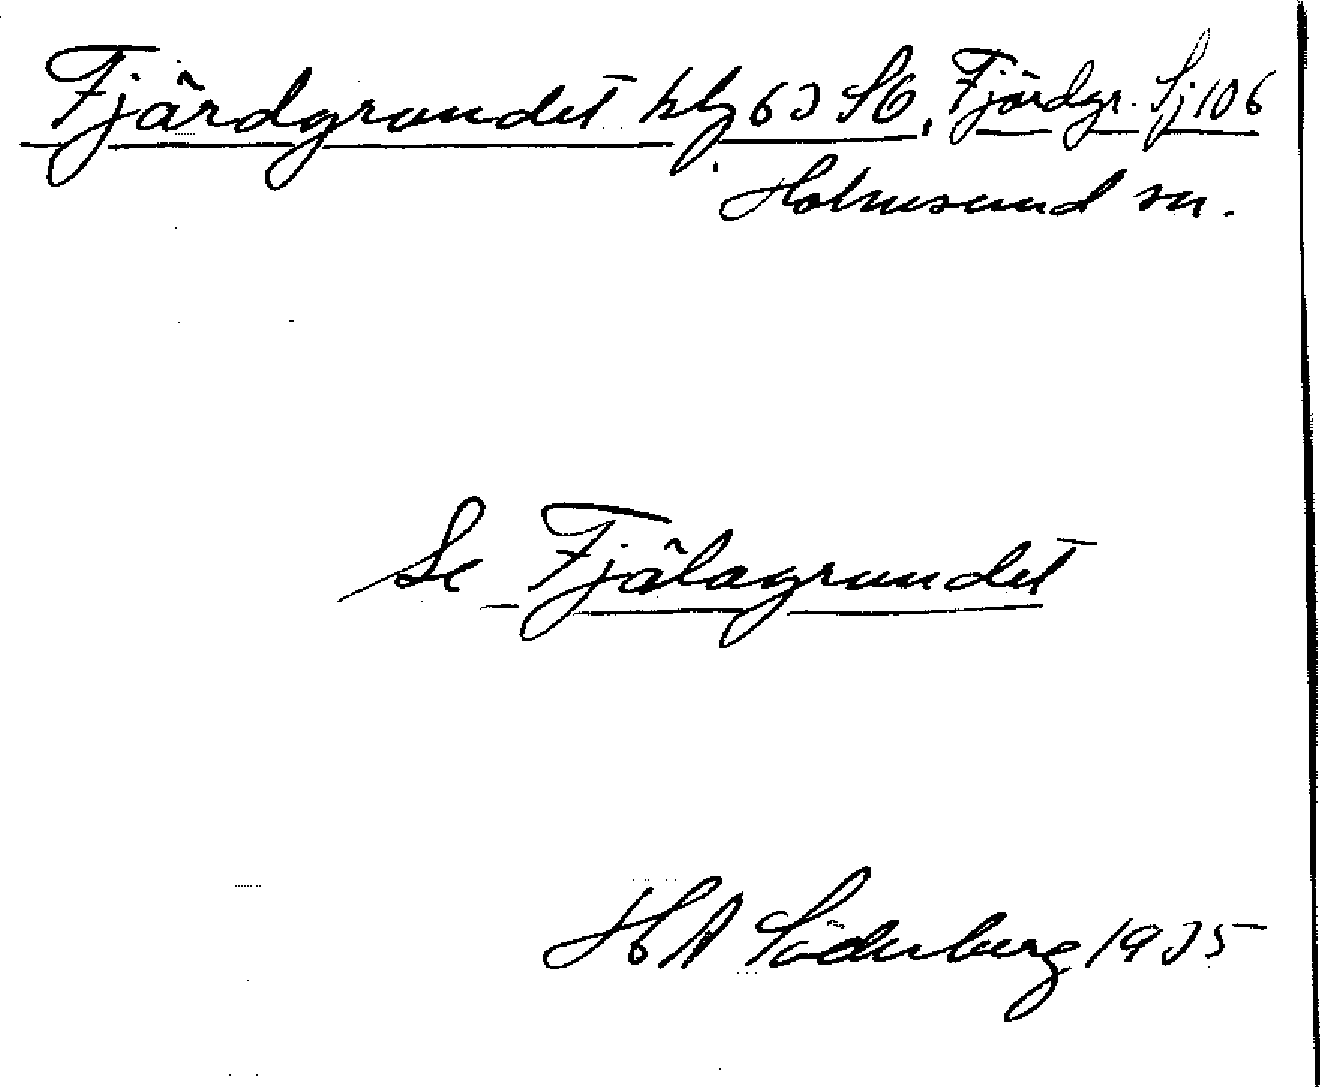 Fjärdgrundet kbl 63 SO, Fjärdgr. Sj 106
Holmsund sn.
Se Fjälagrundet
H A Söderberg 1935